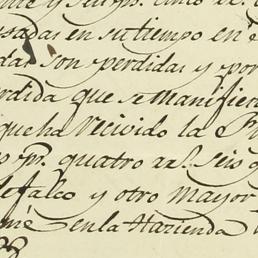 sadas en su tiempo en
das son perdidas y por
rdida que se manifier
que ha recivido la
pr. quatro rs. seis
defalco y otro mayor
en la Hazienda